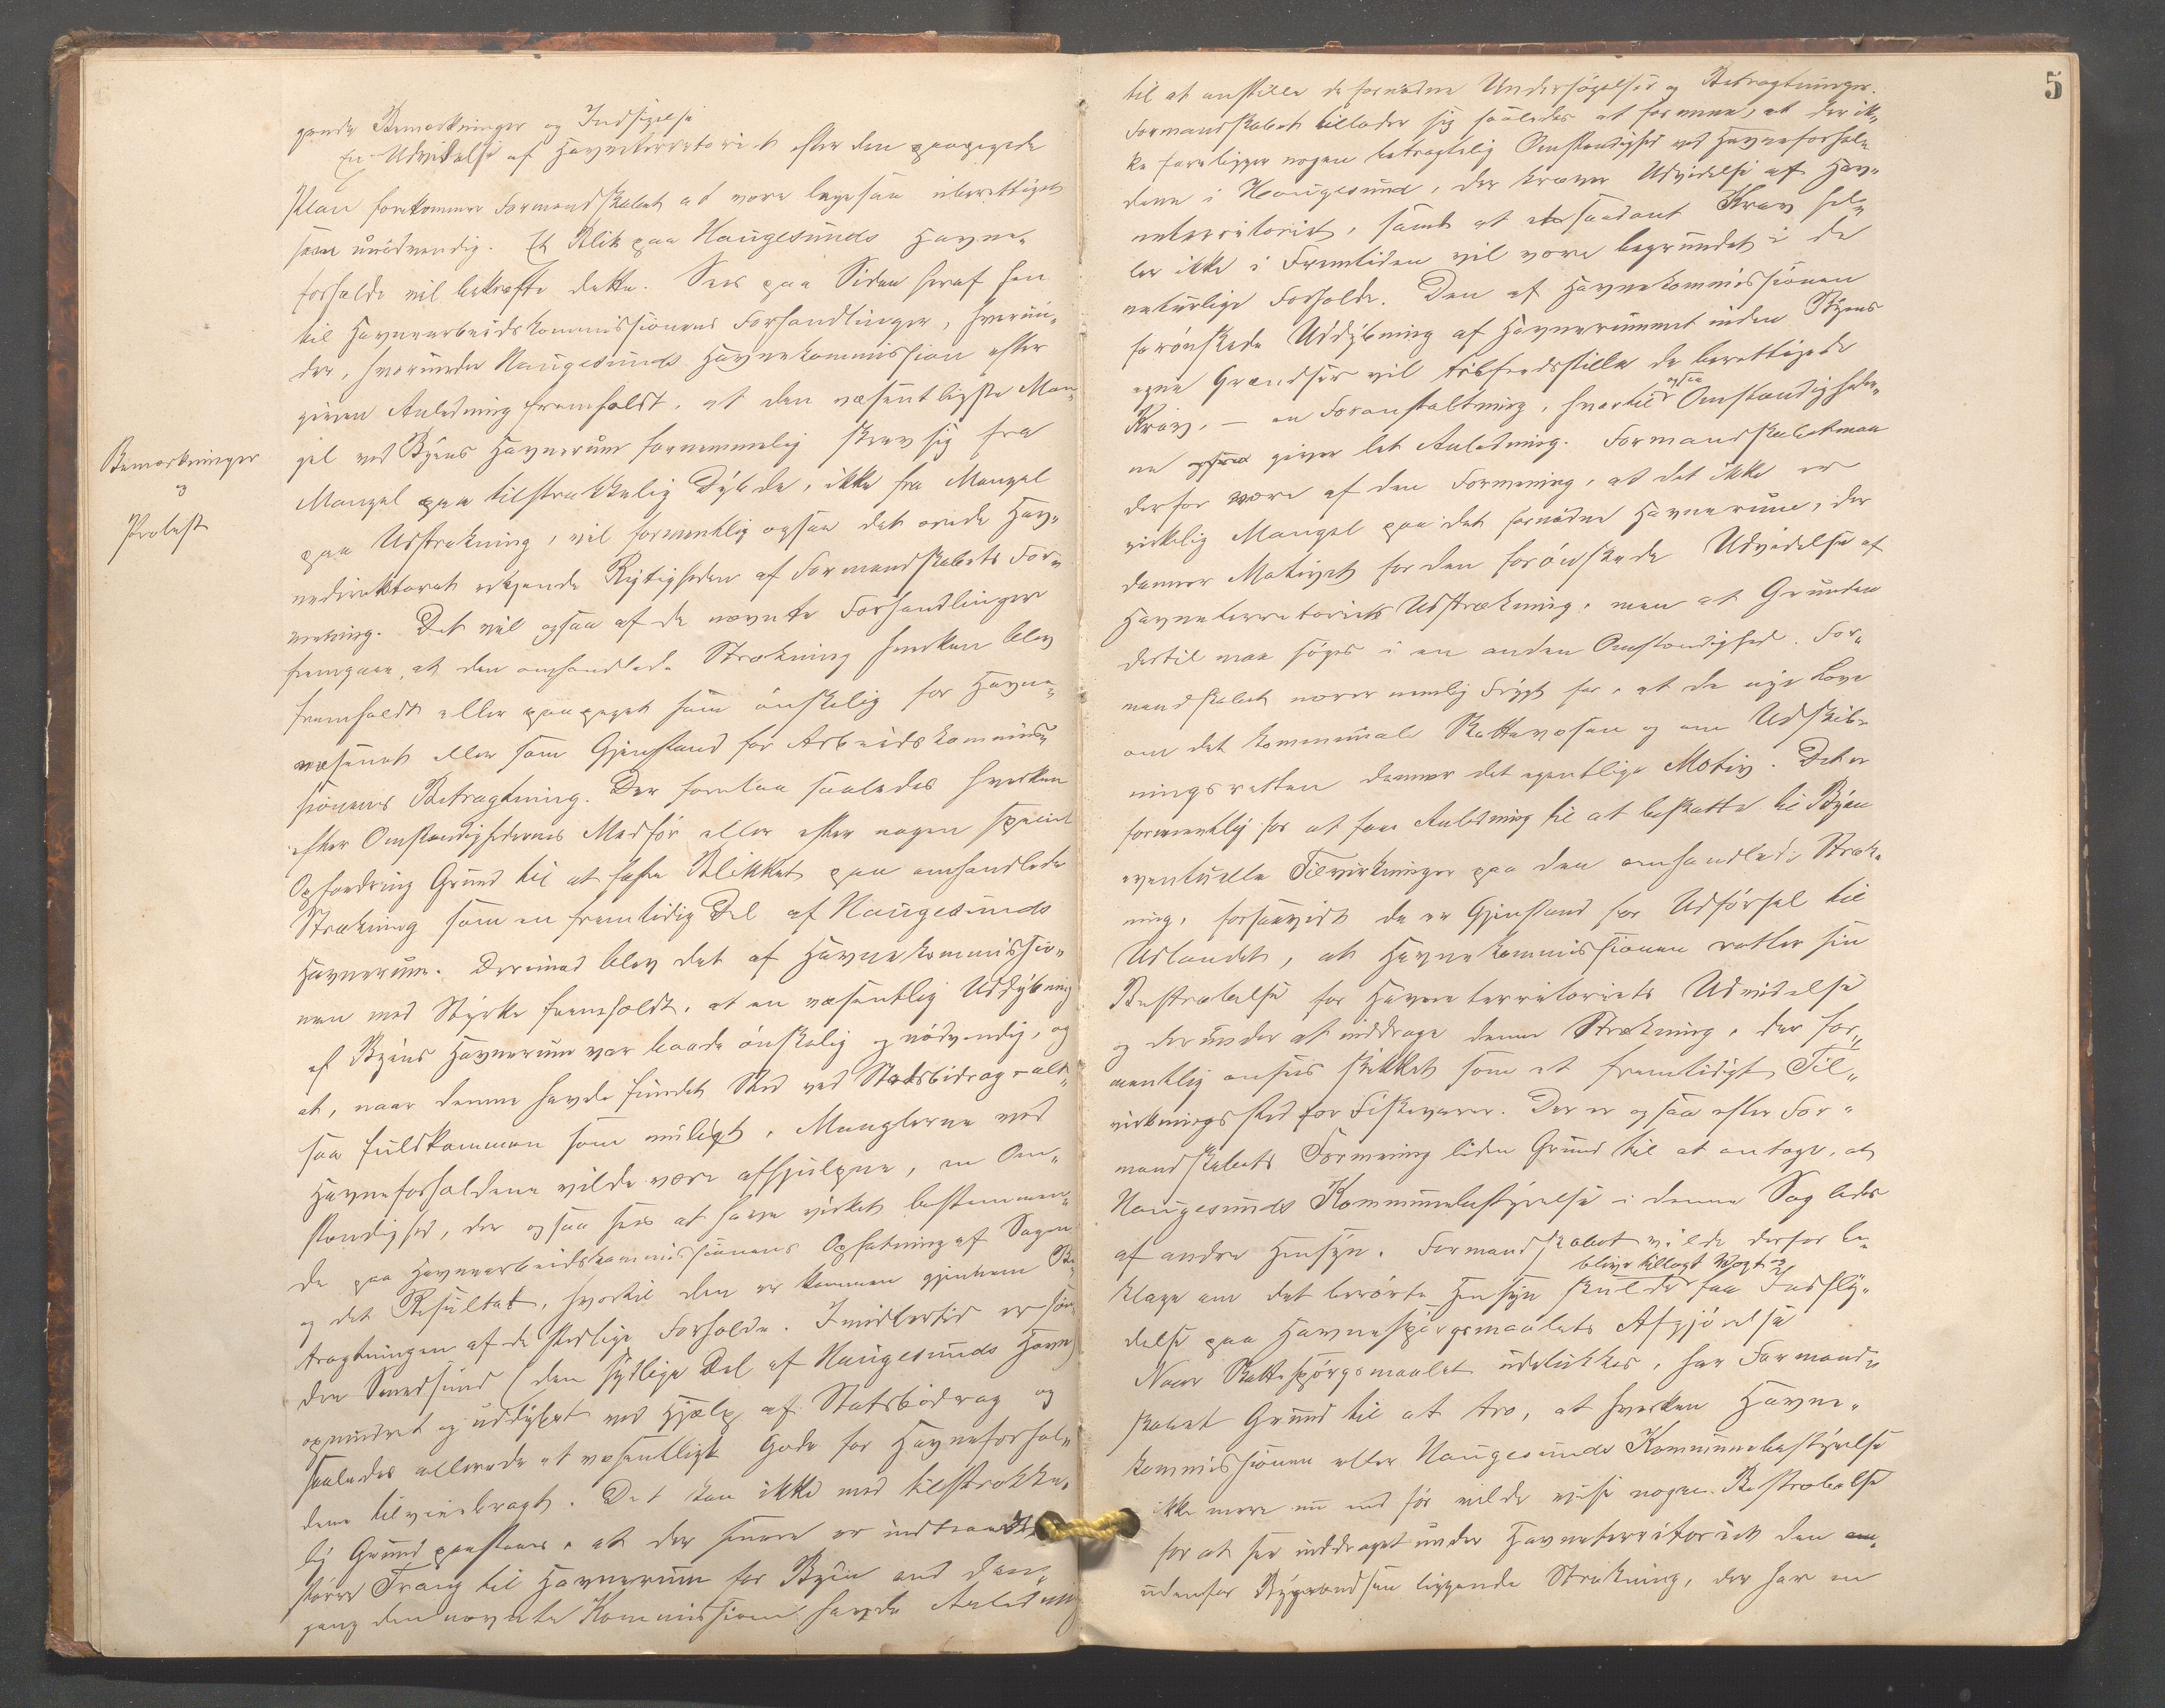 gende Bemærkninger og Indsigelse
En Udvidelse af Havneterritoriet efter den paapegede
Plan forekommer Formandskabet at være ligesaa uberettiget
som unødvendig. Et Blik paa Haugesunds Havne-
forholde vil bekræfte dette. Sees paa Siden heraf hen
til Havnearbeidskommissionens Forhandlinger, hverun-
der, hvorunder Haugesunds Havnekommission efter
given Anledning fremholdt, at den væsentligste Man-
gel ved Byens Havnerum fornemmelig skrev sig fra
Bemærkninger
og
Protest
Mangel paa tilstrækkelig Dybde, ikke fra Mangel
paa Udstrækning, vil formentlig ogsaa det ærede Hav-
nedirektorat erkjende Rigtigheden af Formandskabets For-
mening. Det vil ogsaa af de nævnte Forhandlinger
fremgaa, at den omhandlede Strækning hverken blev
fremholdt eller paapeget som ønskelig for Havne-
væsenet eller som Gjenstand for Arbeidskommis-
sionens Betragtning. Der forelaa saaledes hverken
efter Omstændighedernes Medfør eller efter nogen speciel
Opfordring Grund til at fæste Blikket paa omhandlede
Strækning som en fremtidig Del af Haugesunds
Havnerum. Derimod blev det af Havnekommissio-
nen med Styrke fremholdt, at en væsentlig Uddybning
af Byens Havnerum var baade ønskelig og nødvendig, og
at, naar denne havde fundet Sted ved Statsbidrag - alt
saa fuldkommen som muligt, Manglerne ved
Havneforholdene vilde være afhjulpne, en Om-
stændighed, der ogsaa sees at have virket bestemmen-
de paa Havnearbeidskommissionens Opfatning af Sagen
og det Resultat, hvortil den er kommen gjennem Be-
tragtningen af de stedlige Forholde. Imidlertid er søn-
dre Smedsund (den sydlige Del af Haugesunds Havn)
opmudret og uddybet ved Hjælp af Statsbidrag og
saaledes allerede et væsentligt Gode for Havneforhol-
dene tilveiebragt. Det kan ikke med tilstrække-
lig Grund paastaaes, at der senere er indtraadt
større Trang til Havnerum for Byen end den-
gang den nævnte Kommission havde Anledning
5
til at anstille de fornødne Undersøgelser og Betragtninger.
Formandskabet tillader sig saaledes at formene, at der ik-
ke foreligger nogen betragtelig Omstændighed ved Havneforhol-
dene i Haugesund, der kræver Udvidelse af Hav-
neterritoriet, samt at et saadant Krav hel-
ler ikke i Fremtiden vil være begrundet i de
naturlige Forholde. Den af Havnekommissionen
forønskede Uddybning af Havnerummet inden Byens
egne Grændser vil tilfredsstille de berettigede
Krav, - en Foranstaltning, hvortil ogsaa Omstændighede-
ne ogsaa giver let Anledning. Formandskabet maa
derfor være af den Formening, at det ikke er
virkelig Mangel paa det fornødne Havnerum, der
danner Motivet for den forønskede Udvidelse af
Havneterritoriets Udstrækning, men at Grunden
dertil maa søges i en anden Omstændighed. For-
mandskabet nærer nemlig Frygt for, at de nye Love
om det kommunale Skattevæsen og om Udskib-
ningsretten danner det egentlige Motiv. Det er
formentlig for at faa Anledning til at beskatte til Byen
eventuelle Tilvirkninger paa den omhandlede Stræk-
ning, forsaavidt de er Gjenstand for Udførsel til
Udlandet, at Havnekommissionen retter sin
Bestræbelse for Havneterritoriets Udvidelse
og derunder at inddrage denne Strækning, der for-
mentlig ansees skikket som et fremtidigt Til-
virkningssted for Fiskevarer. Der er ogsaa efter For-
mandskabets Formening liden Grund til at antage, at
Haugesunds Kommunebestyrelse i denne Sag ledes
af andre Hensyn. Formandskabet vilde derfor be-
klage om det berørte Hensyn skulde blive tillagt Vægt og faa Indfly-
delse paa Havnespørgsmaalets Afgjørelse
Naar Skattespørgsmaalet udelukkes, har Formand-
skabet Grund til at tro, at hverken Havne-
kommissionen eller Haugesunds Kommunebestyrelse
ikke mere nu end før vilde vise nogen Bestræbelse
for at faa inddraget under Havneterritoriet den om-
udenfor Bygrændsen liggende Strækning, der har en